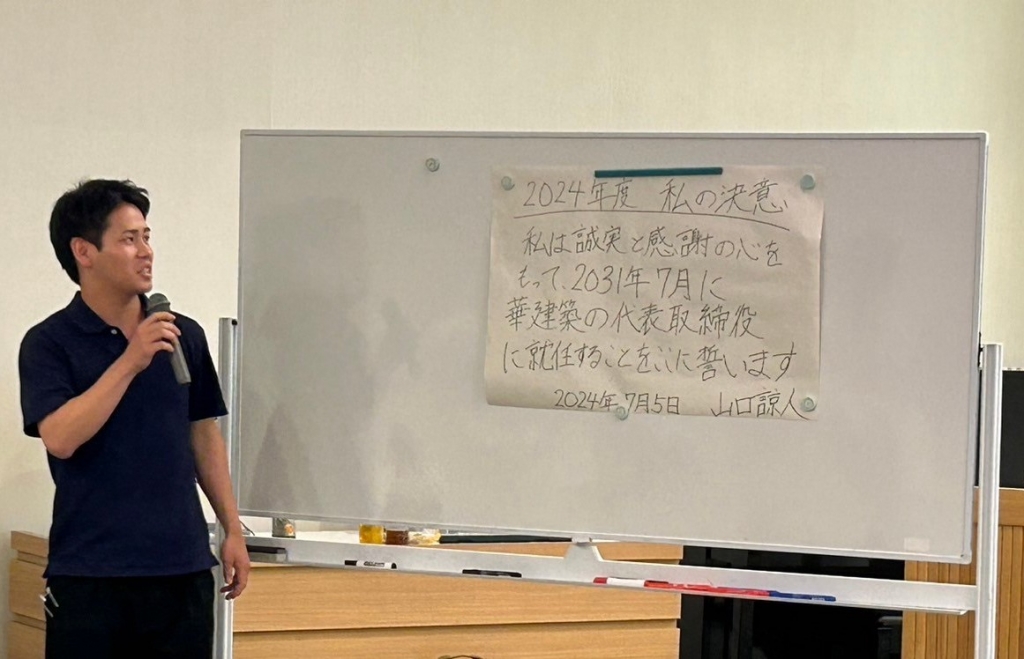 2024年度 私の決意
私は誠実と感謝の心を
もって、2031年7月に
華建築の代表取締役
に就任することをここに誓います
2024年7月5日 山口諒人